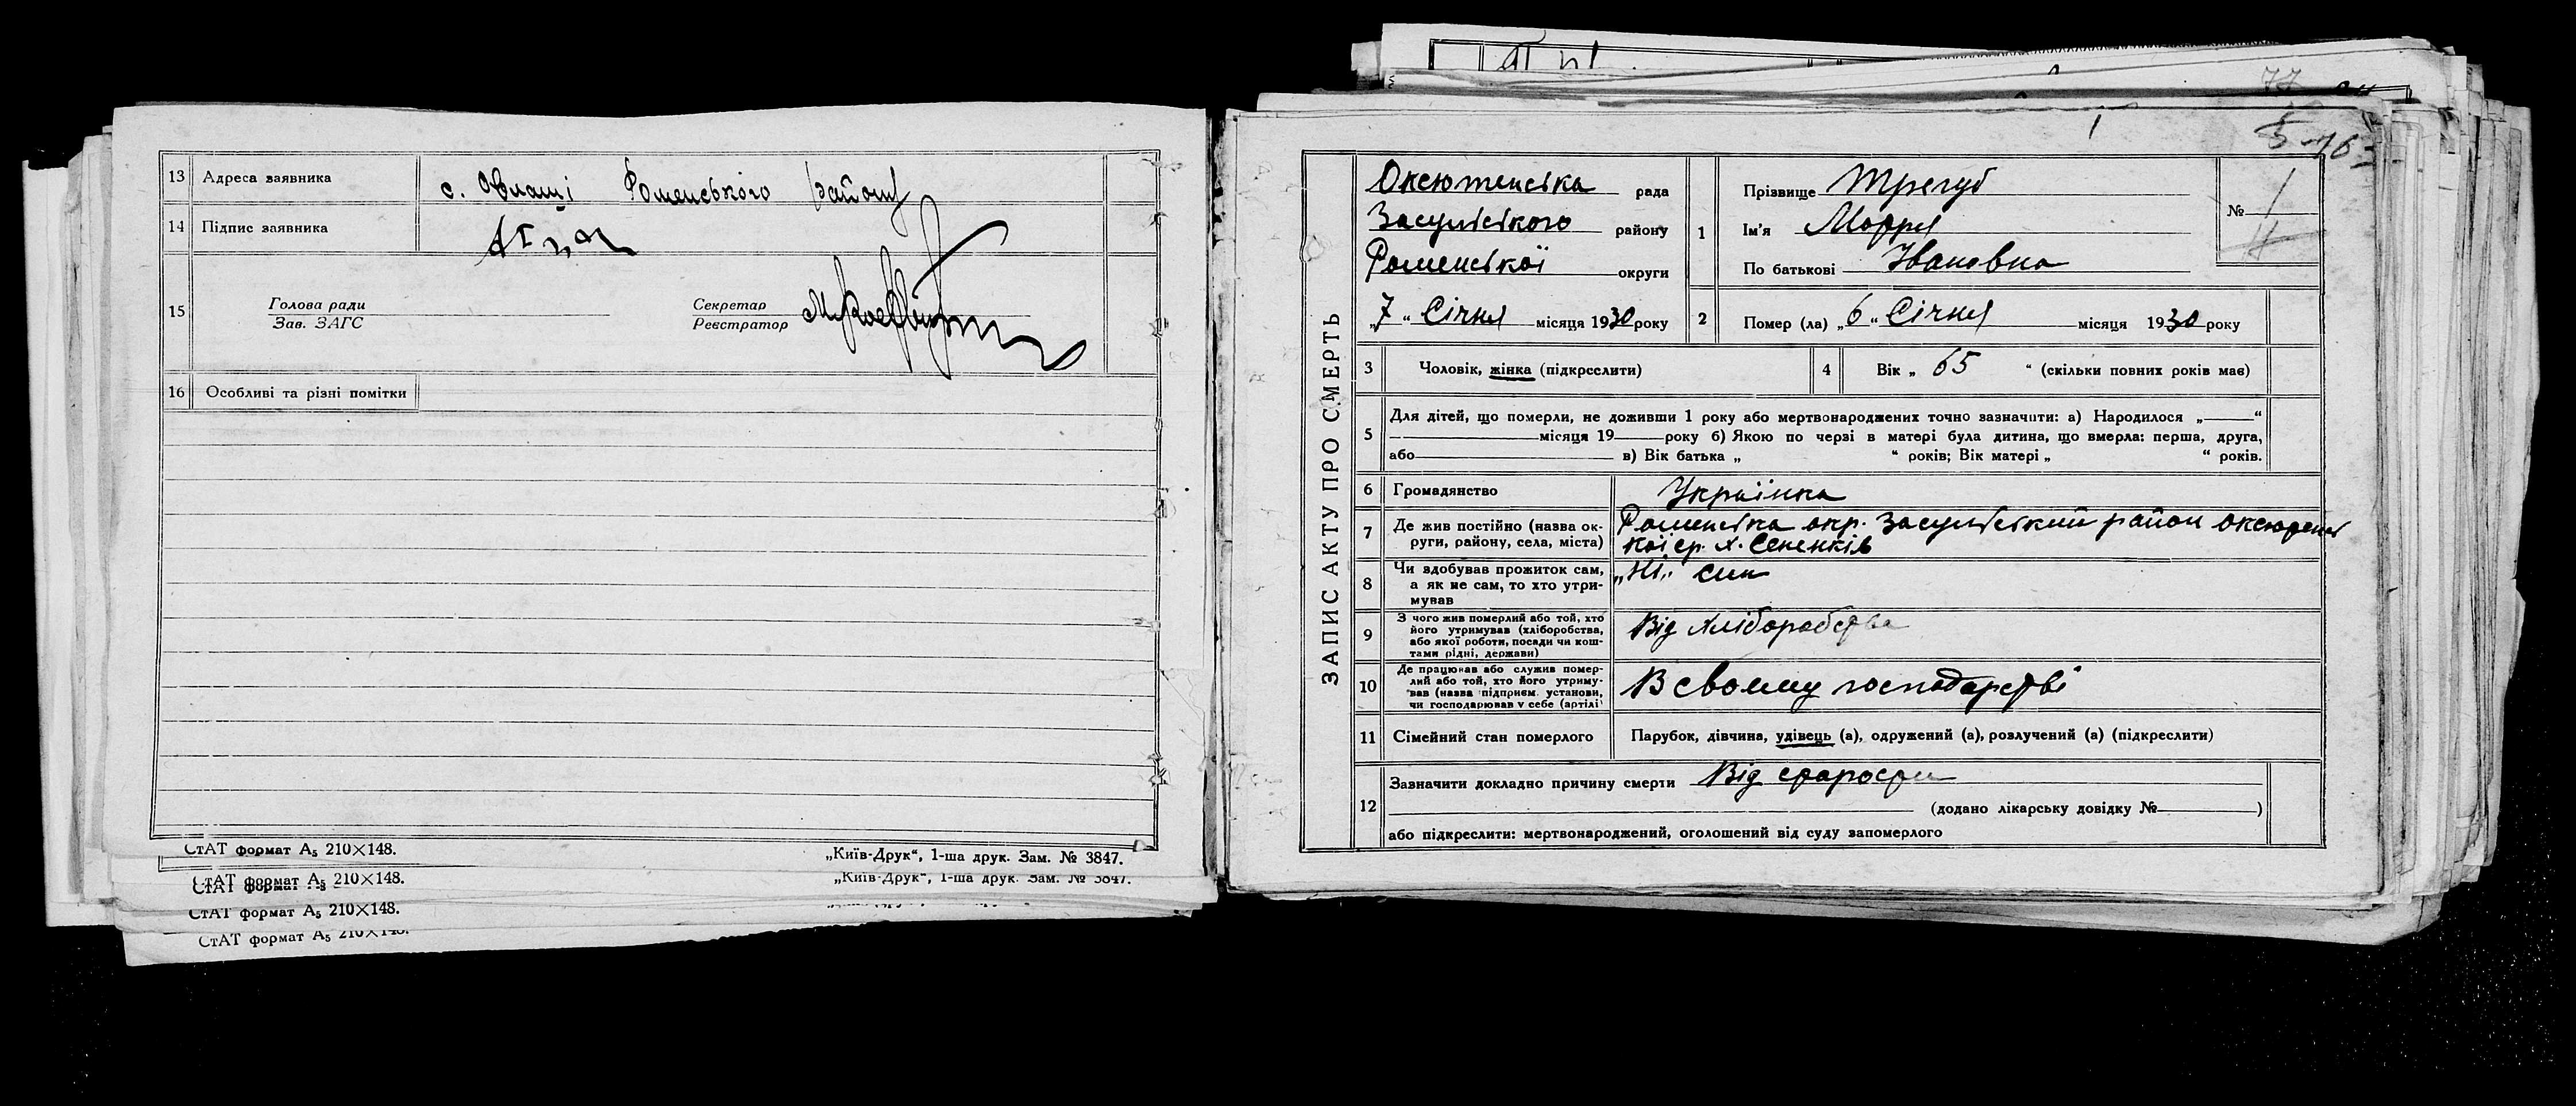 13 Адреса заявника с. Овлаші Роменського району
14 Підпис заявника
15 Голова ради
Зав. ЗАГС
Секретар
Реєстратор
16 Особливі та різні помітки
СтАТ формат А5 210×148.
„Київ-Друк“, 1-ша друк. Зам. № 3847.
СтАТ формат А5 210×148.
„Київ-Друк“, 1-ша друк. Зам. № 3847.
СтАТ формат А5 210×148.
СтАТ формат А5 210×148.
77
76
ЗАПИС АКТУ ПРО СМЕРТЬ
Оксютенська рада
Засульського району
Роменської округи
„7“ Січня місяця 1930 року
1 Прізвище Трегуб
Ім'я Марря
По батькові Івановна
№ 1
2 Помер (ла) „6“ Січня місяця 1930 року
3 Чоловік, жінка (підкреслити)
4 Вік „ 65 “ (скільки повних років має)
5 Для дітей, що померли, не доживши 1 року або мертвонароджених точно зазначити: а) Народилося „——“
місяця 19 року б) Якою по черзі в матері була дитина, що вмерла: перша, друга,
або в) Вік батька „ “ років; Вік матері „ “ років.
6 Громадянство Українка
7 Де жив постійно (назва ок-
руги, району, села, міста)
Роменська окр. Засульський район Оксютенсь
кої ср. х. Сененків
8 Чи здобував прожиток сам,
а як не сам, то хто утри-
мував
„Ні„ син
9 З чого жив померлий або той, хто
його утримував (хліборобства,
або якої роботи, посади чи кош-
тами рідні, держави)
Від хліборобства
10 Де працював або служив помер-
лий або той, хто його утриму-
вав (назва підприєм. установи,
чи господарював у себе (артілі)
В своєму господарстві
11 Сімейний стан померлого Парубок, дівчина, удівець (а), одружений (а), розлучений (а) (підкреслити)
12 Зазначити докладно причину смерти Від старости
(додано лікарську довідку № )
або підкреслити: мертвонароджений, оголошений від суду запомерлого